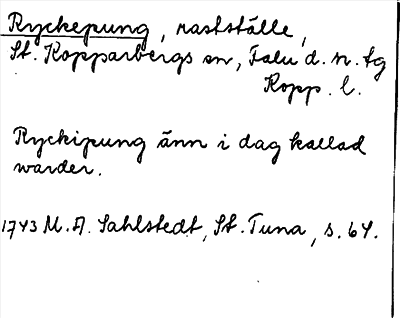 Ryckepung, rastställe,
St. Kopparbergs sn, Falu d. n. tg
Kopp. l.
Ryckipung änn i dag kallad
warder.
1743 M. A. Sahlstedt, St. Tuna, s. 64.